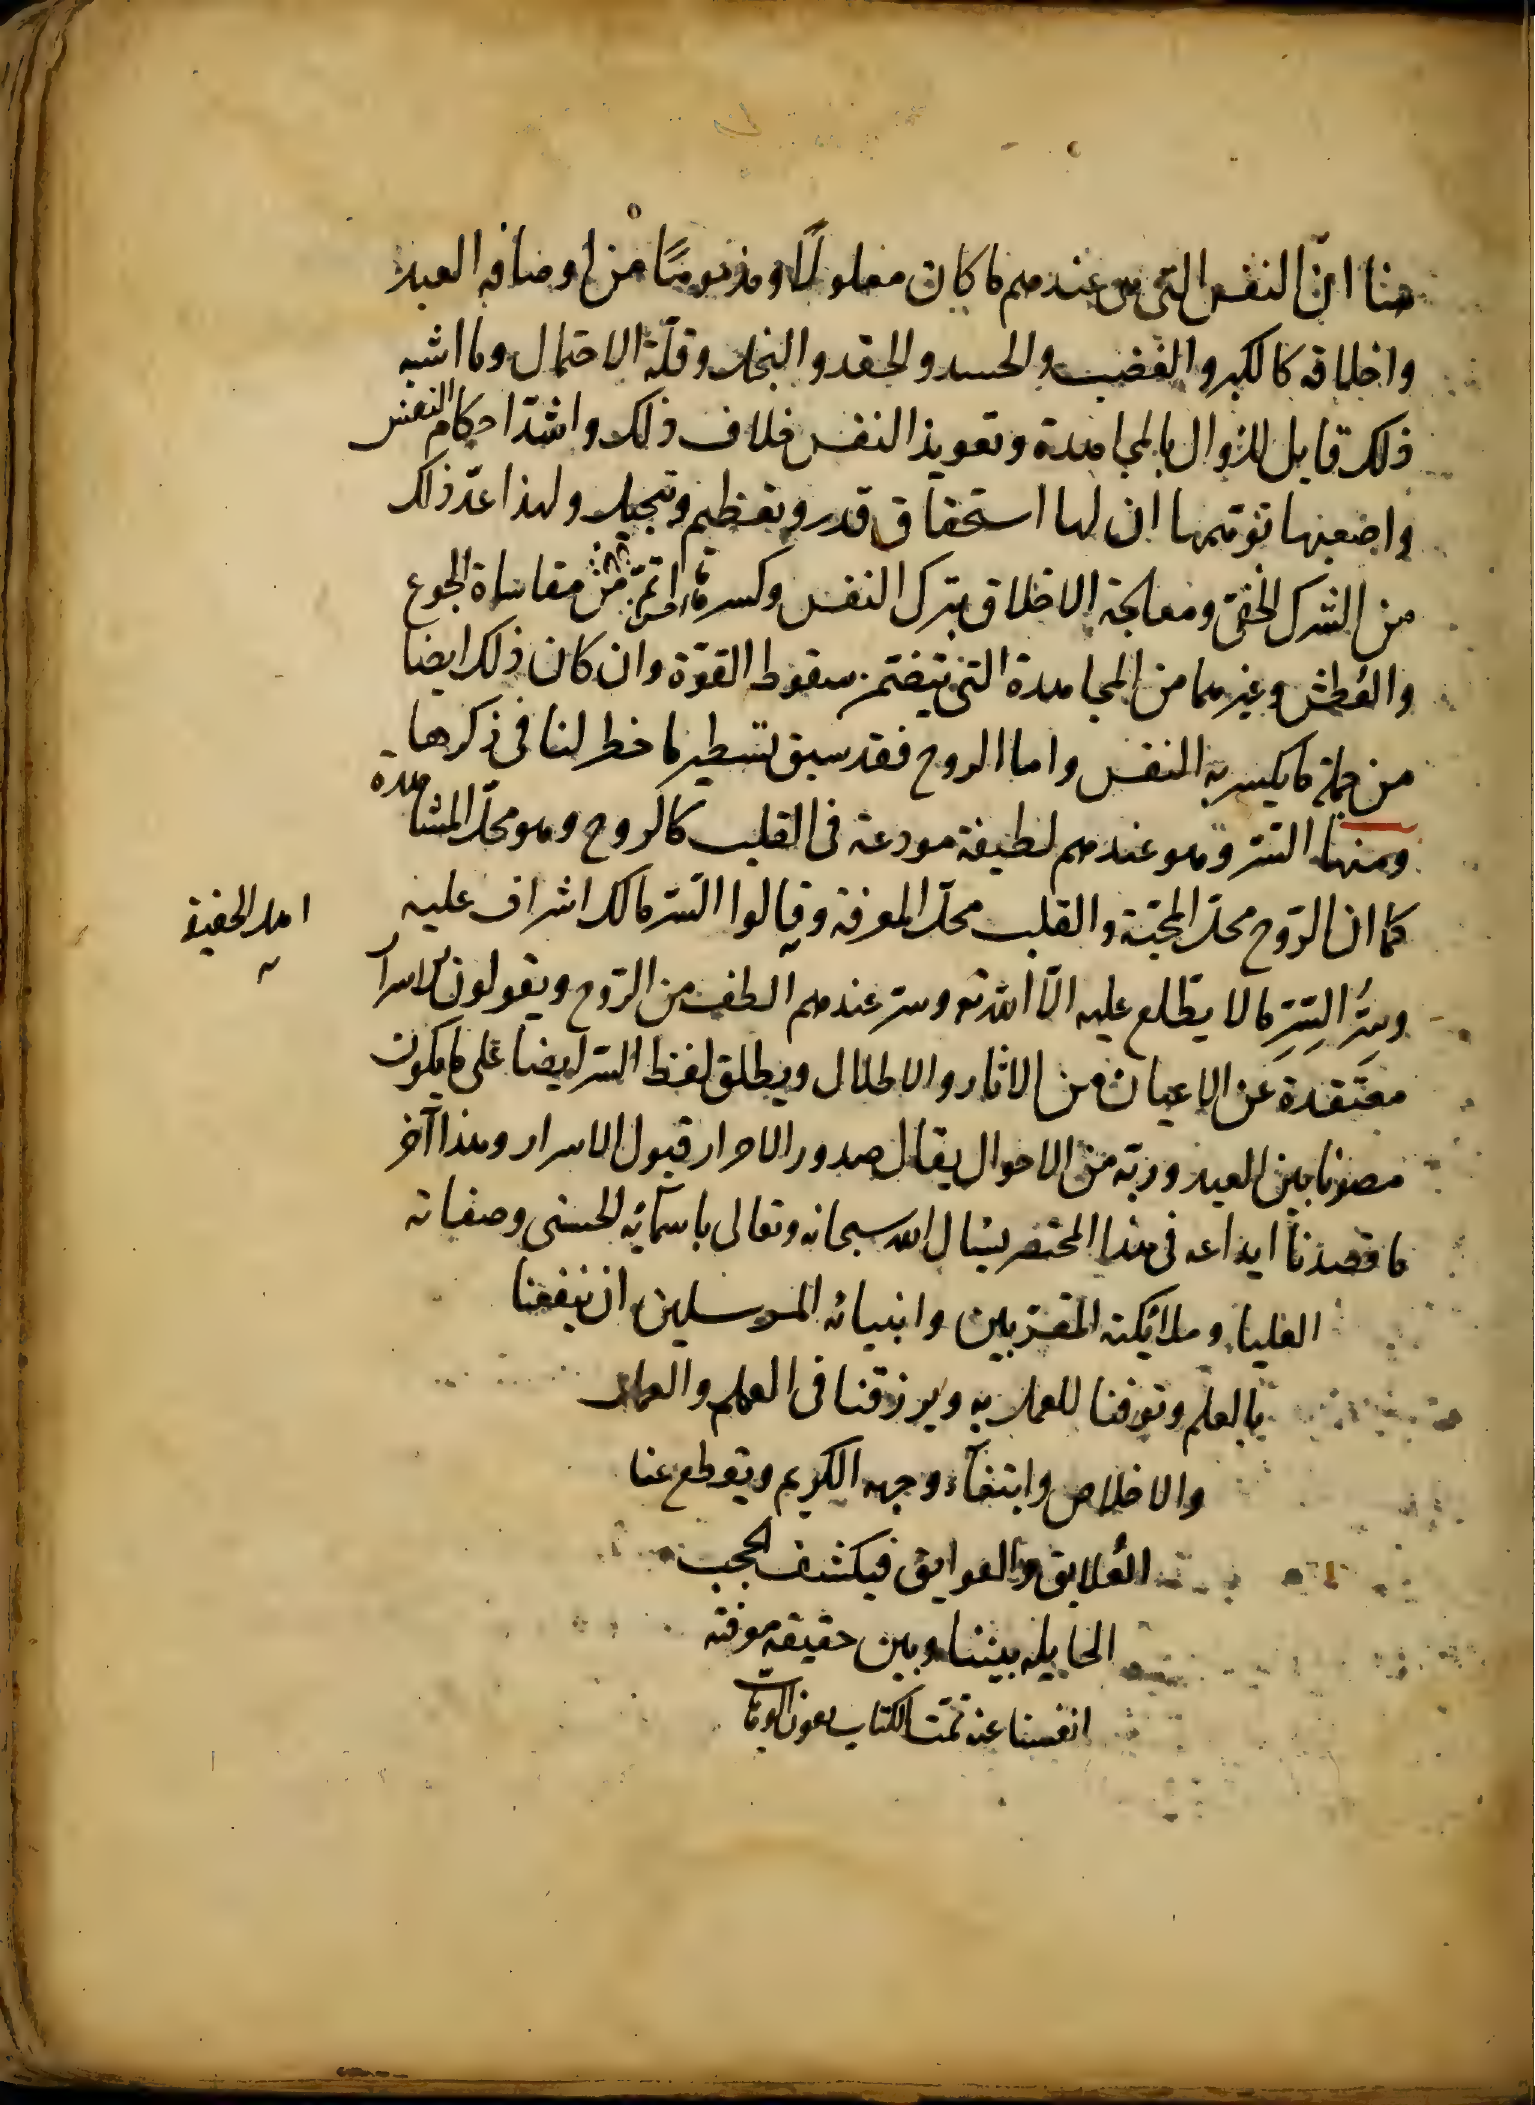 هنا انّ النفس التى هى عندهم ما كان معلولًا ومذمومًا من اوصاف العبد
واخلاقه كالكبر والغضب والحسد والحقد والبخل وقلّة الاحتمال وما اشبه
ذلك قابل للزوال بالمجاهدة وتعويذ النفس خلاف ذلك واشدّ احكام النفس
واصعبها توهّمها ان لها استحقاق قدر وتعظيم وتبجيل ولهذا عدّ ذلك
من الشرك الخفىّ ومعالجة الاخلاق بترك النفس وكسرها اتمّ من مقاساة الجوع
والعطش وغيرهما من المجاهدة التى يتضمّن سقوط القوّة وان كان ذلك ايضا
من جملة ما يكسر به النفس واما الروح فقد سبق تسطير ما خطر لنا فى ذكرها
ومنها السّر وهو عندهم لطيفة مودعة فى القلب كالروح وهو محلّ المشاهدة
كما ان الرّوح محلّ المحبّة والقلب محلّ المعرفة وقالوا السّر مالك اشراف عليه
اهل الحقيقة
وسِرُّ السِّرِّ ما لا يطّلع عليه الّا الله تع وسر عندهم الطف من الرّوح ويقولون الاسرار
معتقدة عن الاعيان من الاثار والاطلال ويطلق لفظ السّر ايضا على ما يكون
مصونا بين العبد وربّه من الاحوال يقال صدور الاحرار قبول الاسرار وهذا آخر
ما قصدنا ايداعه فى هذا المختصر يسئال الله سبحانه وتعالى باسمآئه الحسنى وصفاته
العليا وملائكته المقرّبين وانبيائه المرسلين ان ينفعنا
بالعلم وتوفنا للعمل به ويرزقنا فى العلم والعمل
والاخلاص وابتغآء وجهه الكريم ويقطع عنا
العُلايق والعوايق فيكشف الحجب
الحايله بيننا وبين حقيقه معرفته
انفسنا عنه تمّت الكتاب بعون الوهّاب